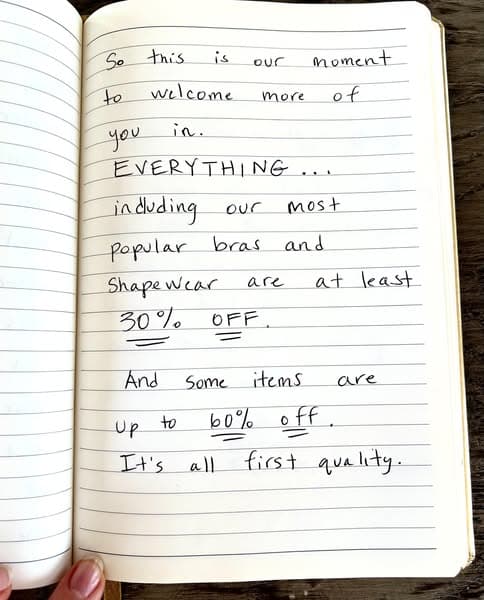 So this is our moment
to welcome more of
you in.
EVERYTHING...
including our most
popular bras and
shapewear are at least
30% OFF.
And some items are
up to 60% off.
It's all first quality.